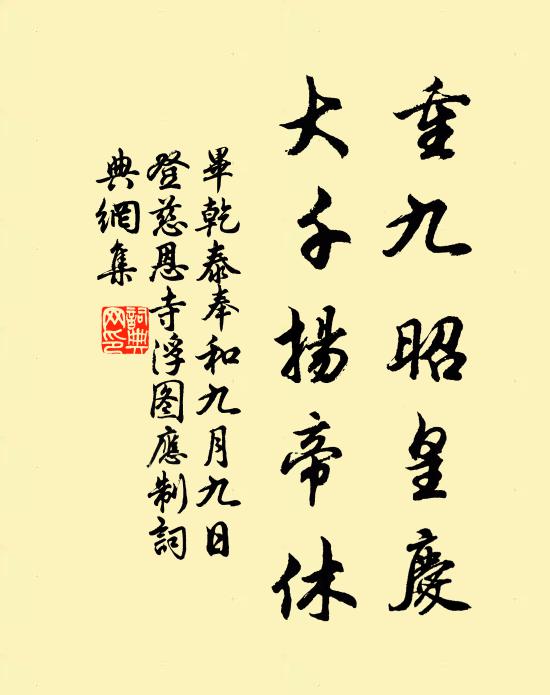 重九昭皇慶
大千揚帝休
畢乾泰奉和九月九日
登慈恩寺浮图應制詞
典網集
詞典网印